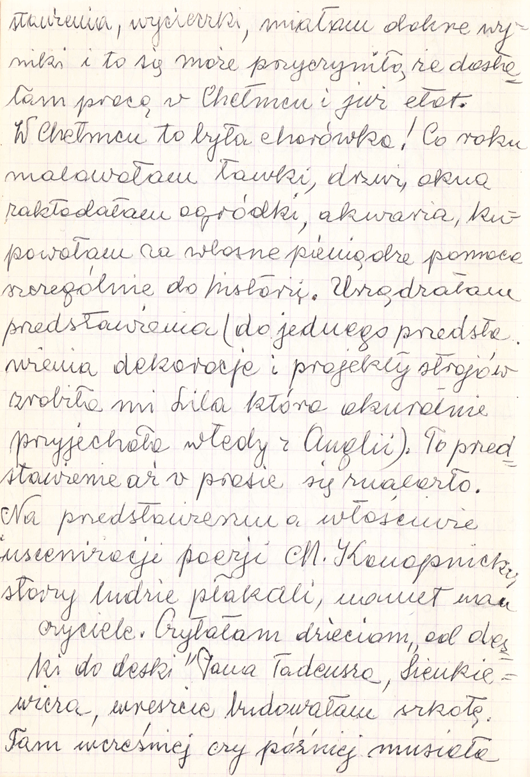 stawienia, wycieczki, miałam dobre wy=
niki i to się może przyczyniło, że dosta=
łam pracę w Chełmcu i już etat.
W Chełmcu to była chorówka! Co roku
malowałam ławki, drzwi, okna
zakładałam ogródki, akwaria, ku=
powałam za własne pieniądze pomoce
szczególnie do historii. Urządzałam
przedstawienia (do jednego przedsta
wienia dekoracje i projekty strojów
zrobiła mi Lila która akuratnie
przyjechała wtedy z Anglii). To przed=
stawienie aż w prasie się znalazło.
Na przedstawieniu a właściwie
inscenizacji poezji M. Konopnickiej
starzy ludzie płakali, nawet nau
czyciele. Czytałam dzieciom "od des=
ki do deski" Pana Tadeusza, Sienkie=
wicza, wreszcie budowałam szkołę.
Tam wcześniej czy później musiała